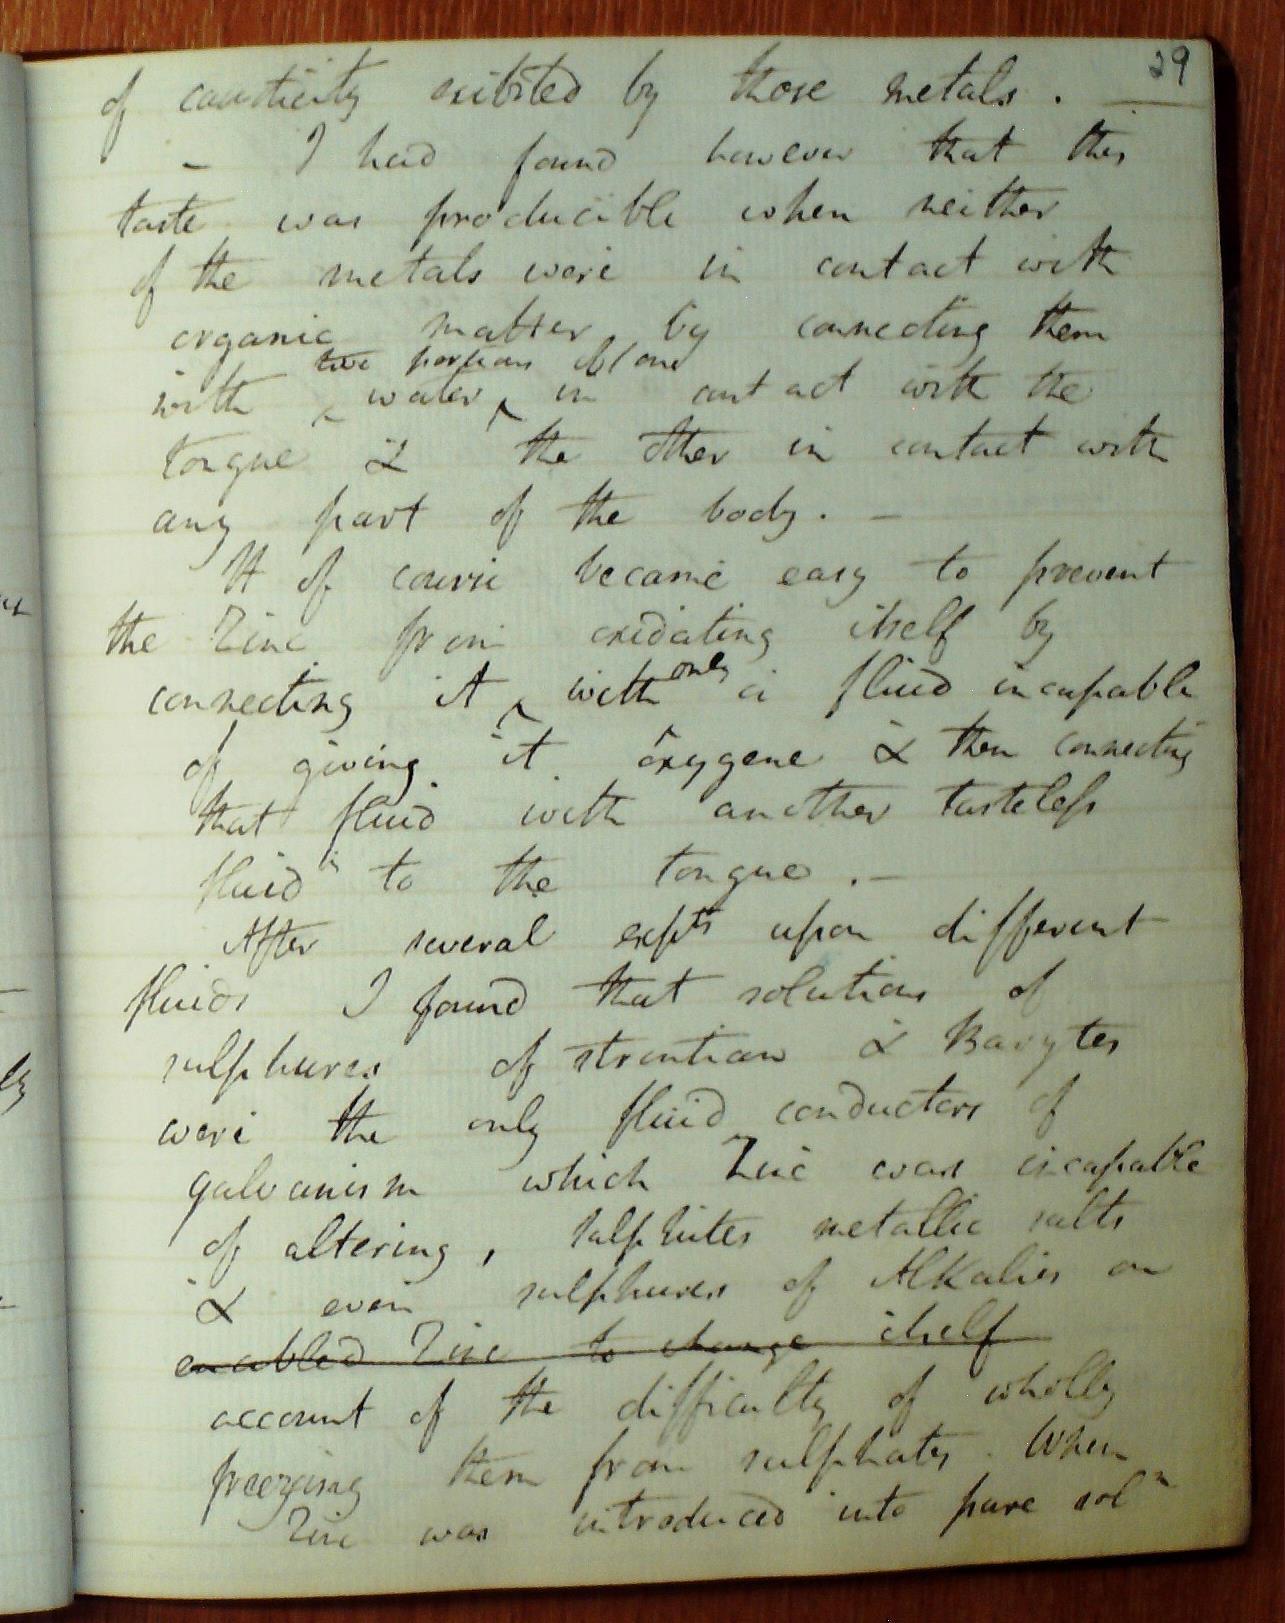 29
of causticity exibited by those metals. —
– I had found however that this
taste was producible when neither
of the metals were in contact with
organic matter by connecting them
two portions of / one
with ‸ water ‸ in contact with the
tongue & the other in contact with
any part of the body. –
It of course became easy to prevent
the Zinc from oxidating itself by
only
connecting it ‸ with a fluid incapable
of giving it oxygene & then connecting
that fluid with another tasteless
fluid to the tongue. –
After several expts upon different
fluids I found that solutions of
sulphures of strontian & Barytes
were the only fluid conductors of
galvanism which Zinc was incapable
of altering, sulphites metallic salts
& even sulphures of Alkalies on
enabled Zinc to change itself
account of the difficulty of wholly
freeing them from sulphates. When
Zinc was introduced into pure soln